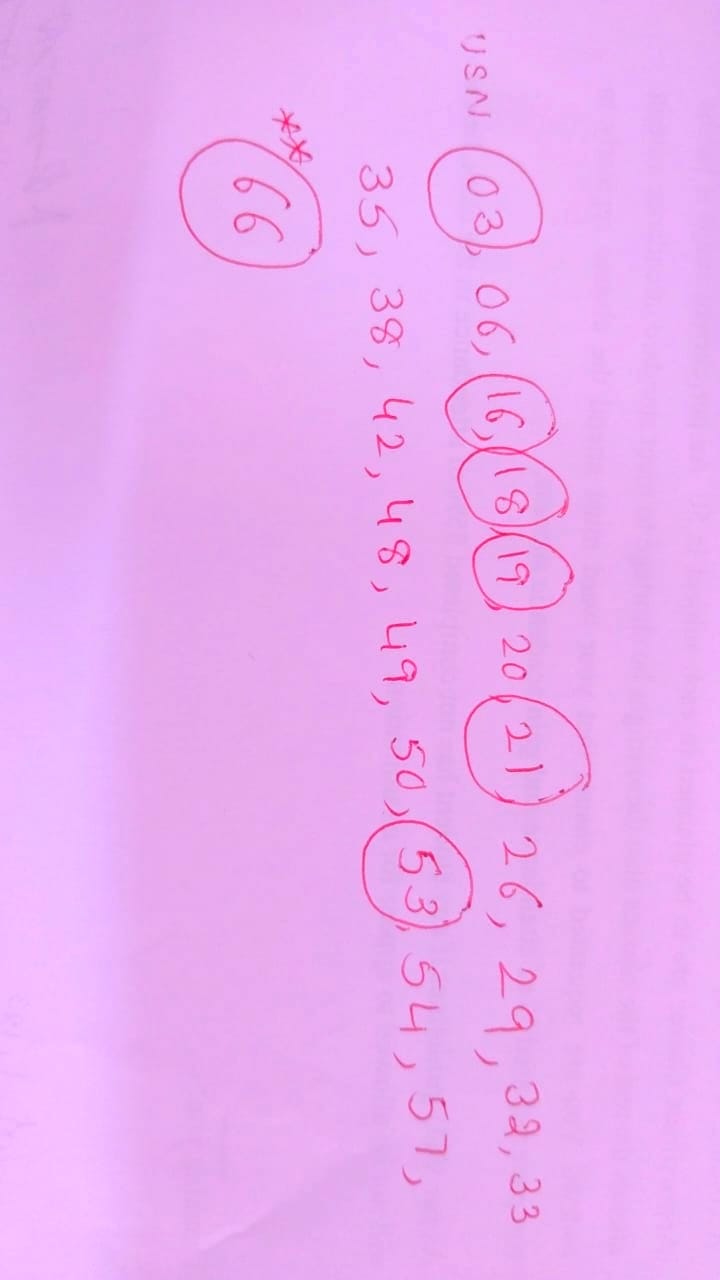 USN 03, 06, 16, 18, 19, 20, 21, 26, 29, 32, 33
35, 38, 42, 48, 49, 50, 53, 54, 57,
**
66